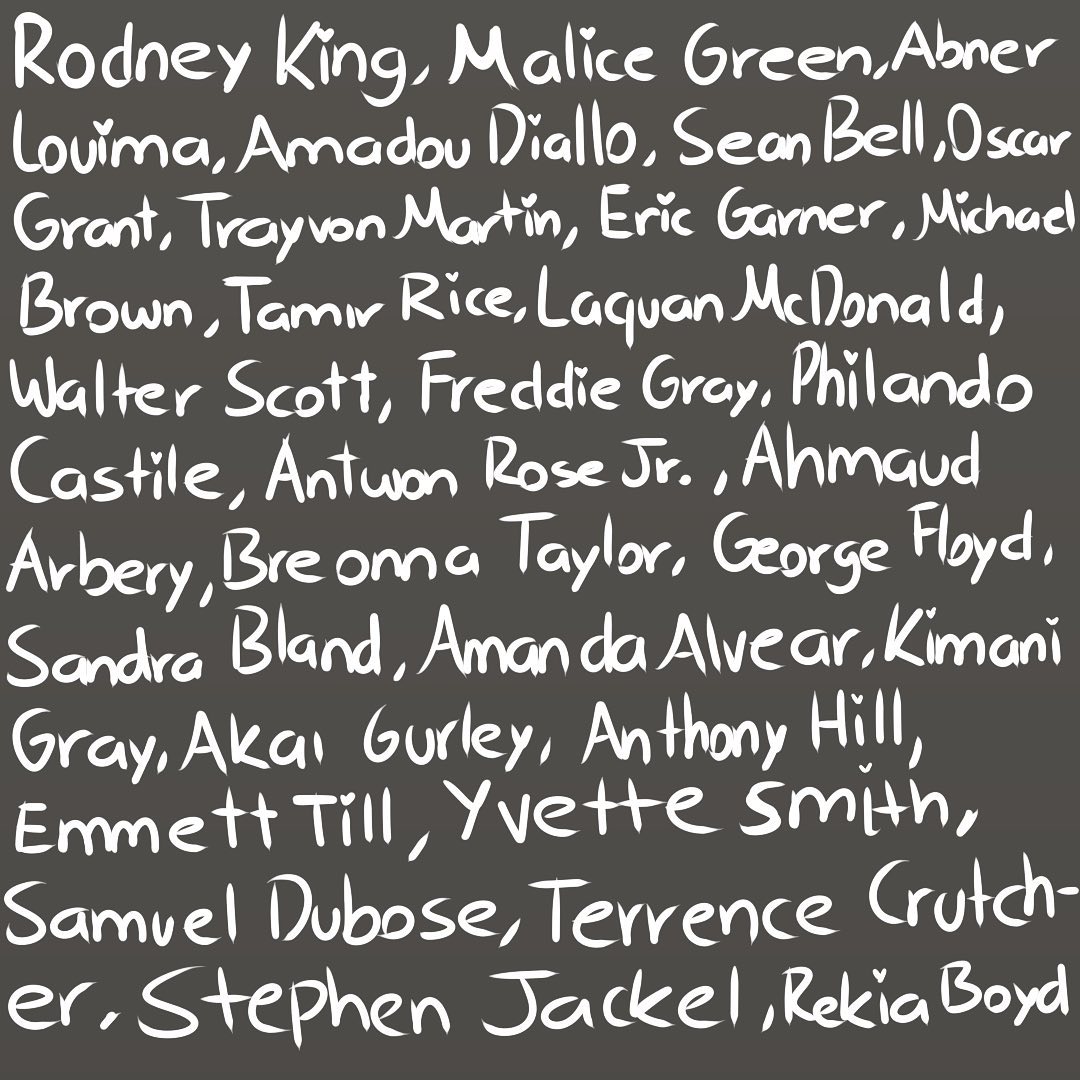 Rodney King, Malice Green, Abner
Louima, Amadou Diallo, Sean Bell, Oscar
Grant, Trayvon Martin, Eric Garner, Michael
Brown, Tamir Rice, Laquan McDonald,
Walter Scott, Freddie Gray, Philando
Castile, Antwon Rose Jr., Ahmaud
Arbery, Breonna Taylor, George Floyd,
Sandra Bland, Amanda Alvear, Kimani
Gray, Akai Gurley, Anthony Hill,
Emmett Till, Yvette Smith,
Samuel Dubose, Terrence Crutch-
er, Stephen Jackel, Rekia Boyd